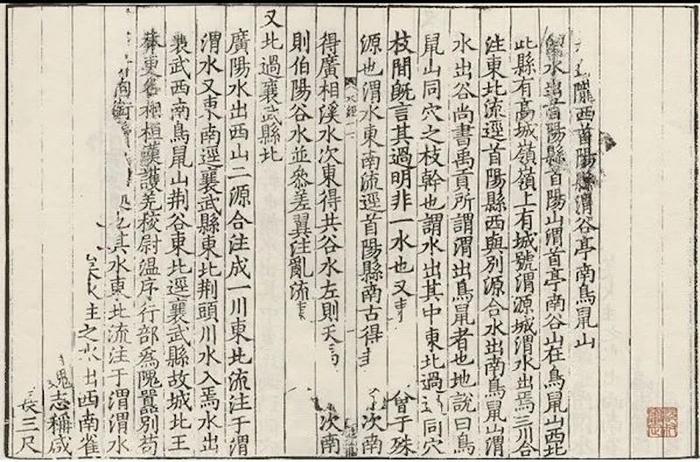 隴西首陽縣渭谷亭南鳥鼠山
渭水出首陽縣首陽山渭首亭南谷山在鳥鼠山西北
此縣有高城嶺嶺上有城號渭源城渭水出焉三川合
注東北流逕首陽縣西與別源合水出南鳥鼠山渭
水出谷尚書禹貢所謂渭出鳥鼠者也地說曰鳥
鼠山同穴之枝幹也謂水出其中東北過同穴
枝間旣言其過明非一水也又東 曾子殊
源也渭水東南流逕首陽縣南古得 次南
水經
得廣相溪水次東得共谷水左則天馬 次南
則伯陽谷水並參差翼注亂流
又北過襄武縣北
廣陽水出西山二源合注成一川東北流注于渭
渭水又東南逕襄武縣東北荆頭川水入焉水出
襄武西南鳥鼠山荆谷東北逕襄武縣故城北王
莽更名相桓漢護羌校尉溫序行部爲隗囂別苟
其水東北流注于渭渭水
之水出西南雀
志稱咸
長三尺